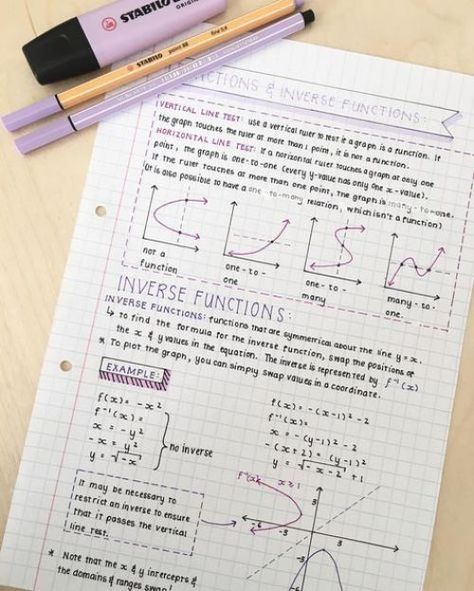 STABILO
ORIGINAL
STABILO point 88 fine 0.4
FUNCTIONS & INVERSE FUNCTIONS:
VERTICAL LINE TEST: use a vertical ruler to test if a graph is a function. If
the graph touches the ruler at more than 1 point, it is not a function.
HORIZONTAL LINE TEST: If a horizontal ruler touches a graph at only one
point, the graph is one-to-one (every y-value has only one x-value).
If the ruler touches at more than one point, the graph is many-to-one.
(It is also possible to have a one-to-many relation, which isn't a function)
not a
function
one-to-
one
one-to-
many
many-to-
one.
INVERSE FUNCTIONS:
INVERSE FUNCTIONS: functions that are symmetrical about the line y=x.
↳ to find the formula for the inverse function, swap the positions of
the x & y values in the equation. The inverse is represented by f⁻¹(x)
* To plot the graph, you can simply swap values in a coordinate.
EXAMPLE:
f(x) = -x²
f⁻¹(x) =
x = -y²
-x = y²
y = √-x
no inverse
f(x) = -(x-1)² - 2
f⁻¹(x) =
x = -(y-1)² - 2
-(x+2) = (y-1)²
y = √-x-2 + 1
It may be necessary to
restrict an inverse to ensure
that it passes the vertical
line test.
x≥1
-6
-3
3
3
-3
* Note that the x & y intercepts &
the domains & ranges swap!